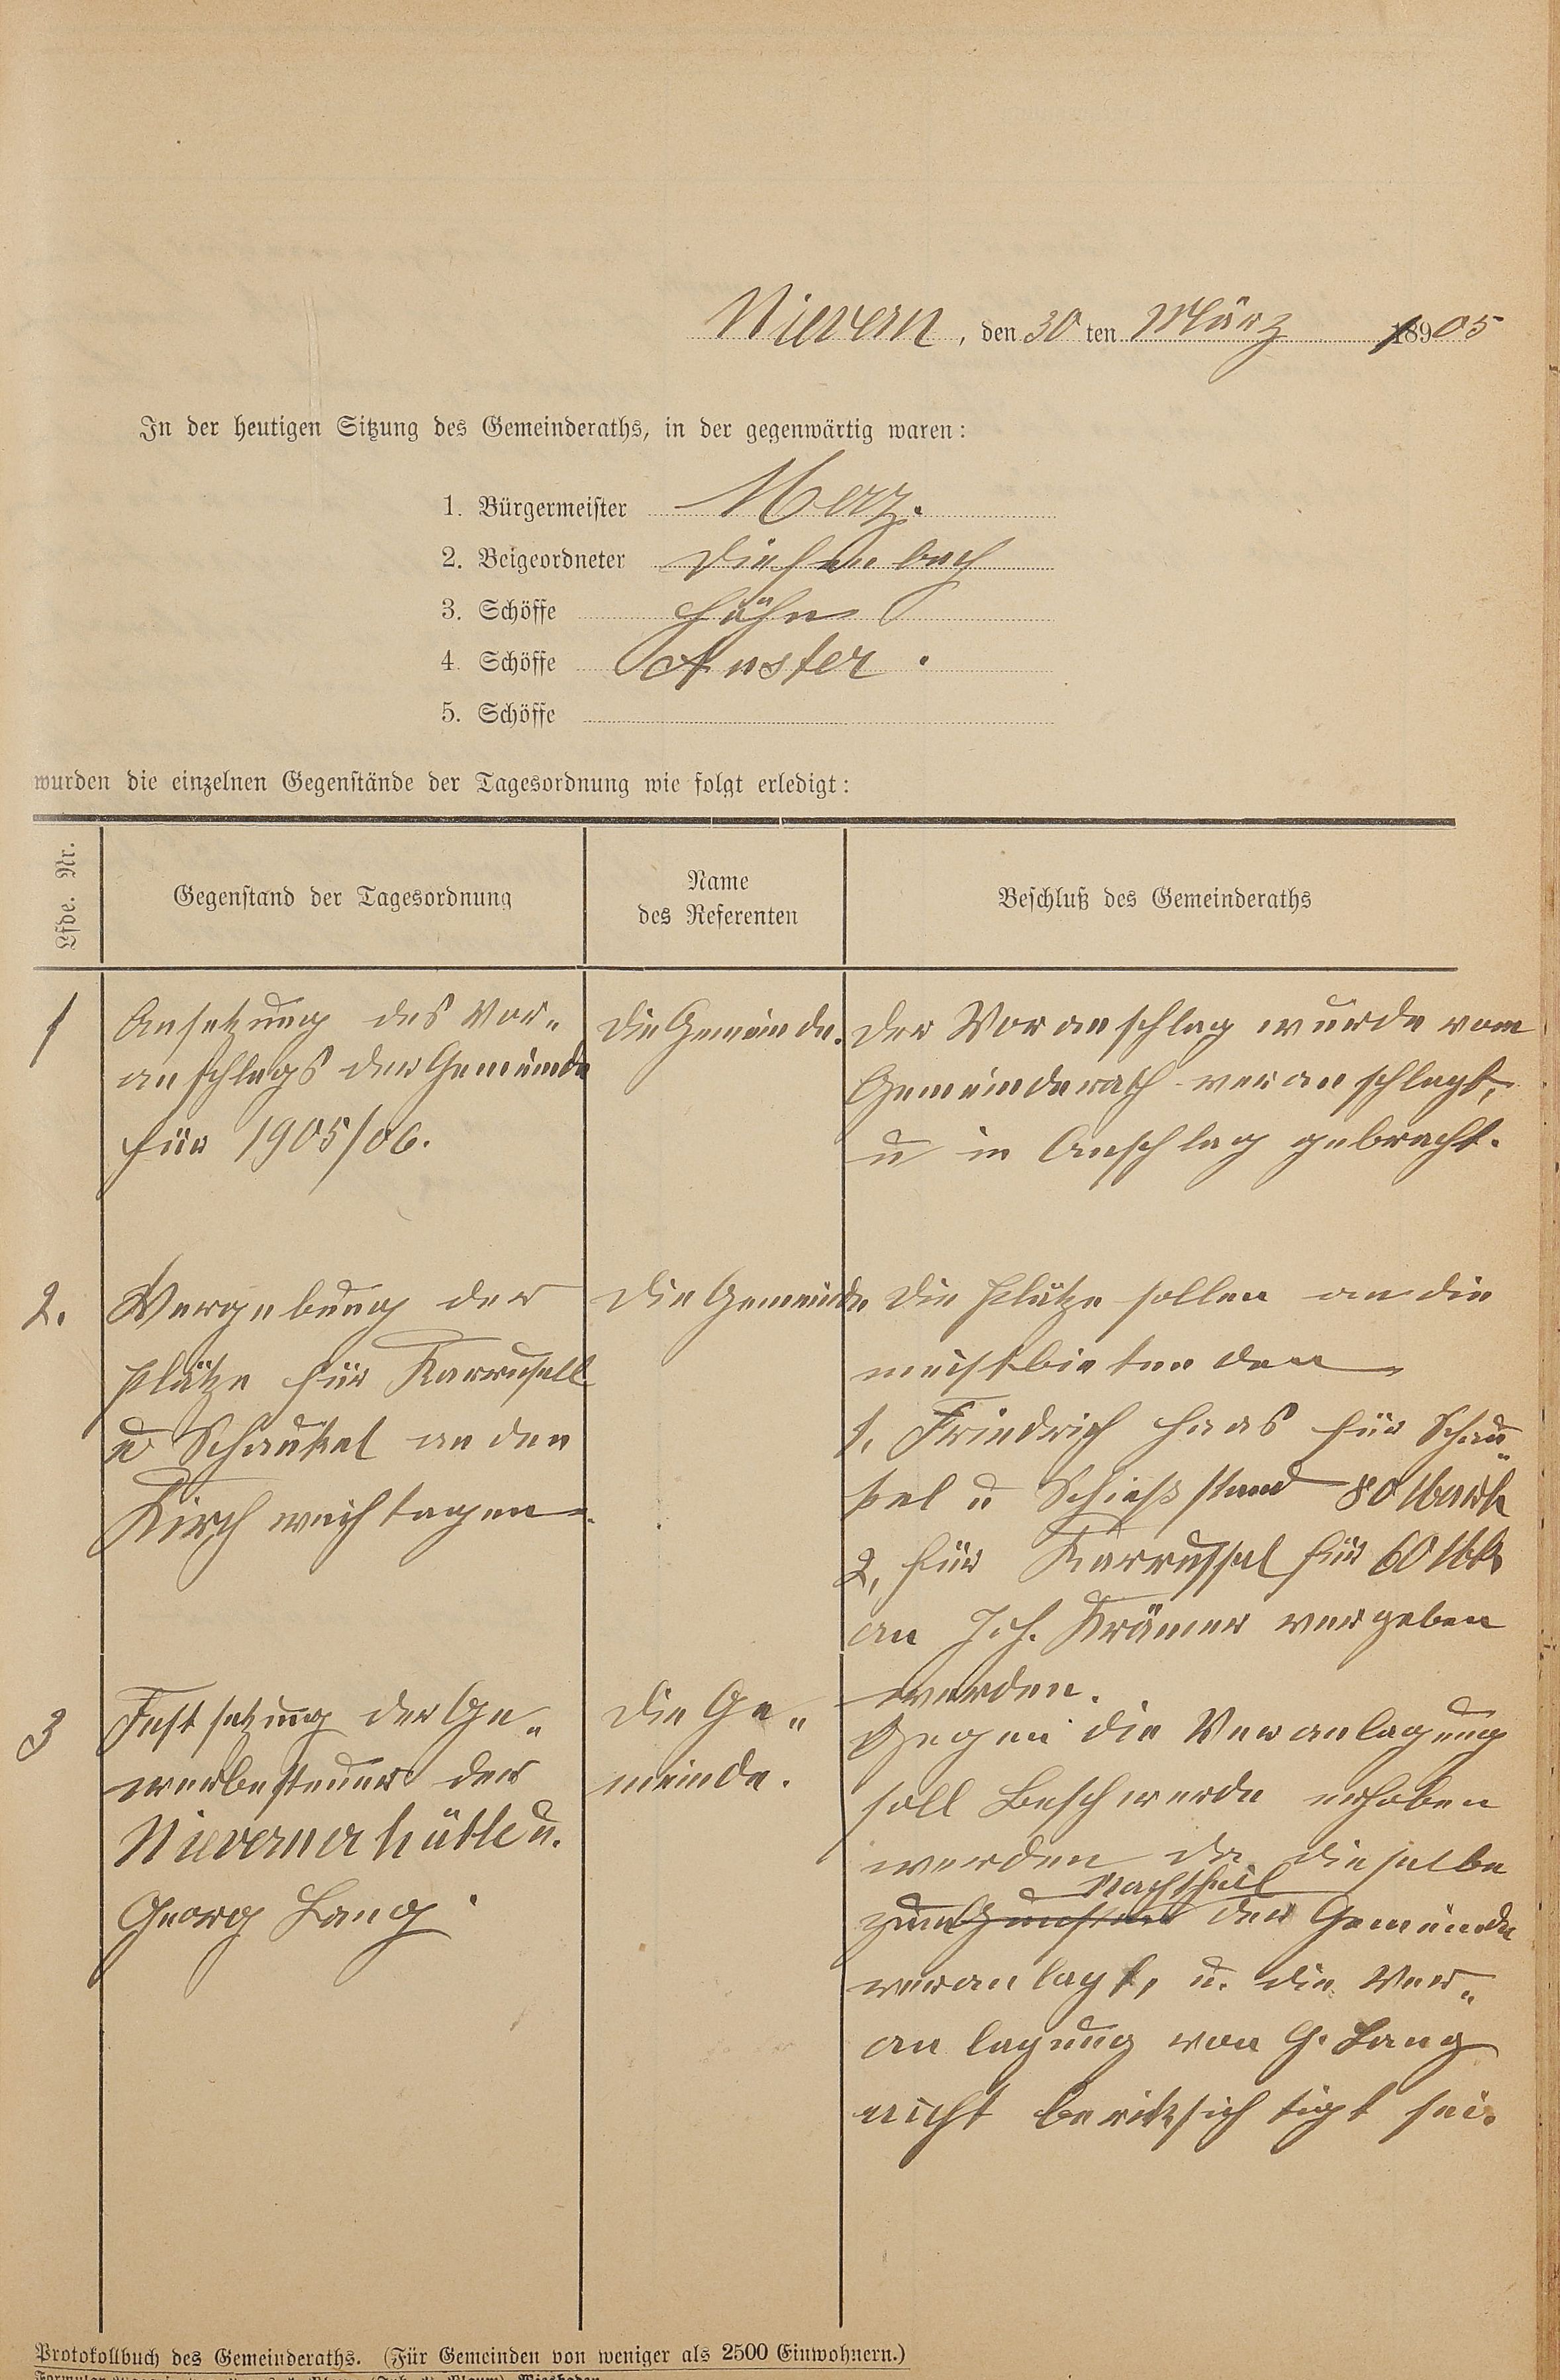 Nievern, den 30 ten März 18905
In der heutigen Sitzung des Gemeinderaths, in der gegenwärtig waren:
1. Bürgermeister Merz.
2. Beigeordneter Diefenbach
3. Schöffe Höhn
4. Schöffe Anster.
5. Schöffe
wurden die einzelnen Gegenstände der Tagesordnung wie folgt erledigt:
Lfde. Nr.
Gegenstand der Tagesordnung
Name
des Referenten
Beschluß des Gemeinderaths
1
Ansetzung des Vor-
anschlags der Gemeinde
für 1905/06.
Die Gemeinde.
Der Voranschlag wurde vom
Gemeinderath veranschlagt,
u in Anschlag gebracht.
2.
Vergebung der
Plätze für Karrusell
u Schaukel an den
Kirchweihtagen.
Die Gemeinde
Die Plätze sollen an die
meistbietenden
1. Friedrich Haas für Schau-
kel u Schießstand 80 Mark
2, für Karrussel für 60 Mk
an Joh. Krämer vergeben
werden.
3
Festsetzung der Ge-
werbesteuer der
Nievernerhütte u.
Georg Lang.
Die Ge-
meinde.
Gegen die Veranlagung
soll Beschwerde erhoben
werden da dieselbe
Nachtheil
zum Gunsten der Gemeinde
veranlagt, u. die Ver-
anlagung von G. Lang
nicht beriksichtigt sei.
Protokollbuch des Gemeinderaths. (Für Gemeinden von weniger als 2500 Einwohnern.)